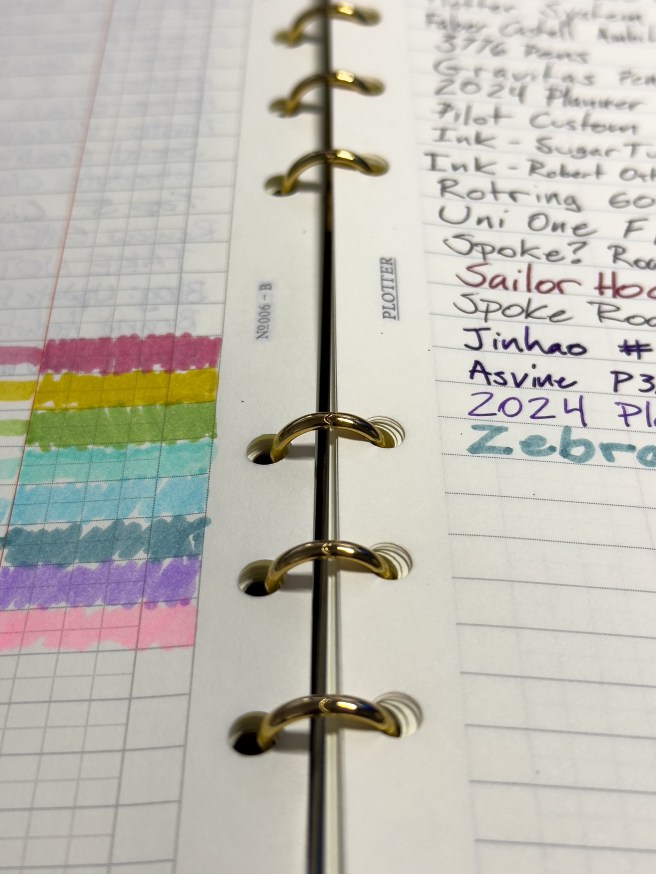 No006 - B
PLOTTER
System
Faber Castell
3776 Pens
Gravitas Pen
2024 Planner
Pilot Custom
Ink - Sugar Tu
Ink - Robert Ost
Rotring 60
Uni One F
Spoke? Roa
Sailor Hoc
Spoke Roa
Jinhao #
Asvine P3
2024 Pl
Zebra